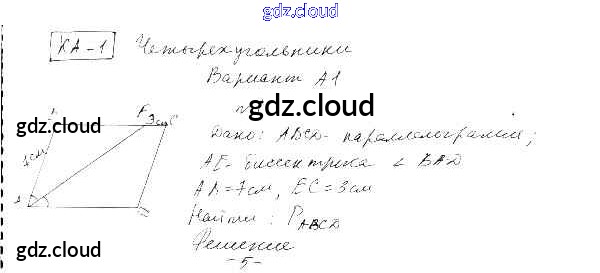 gdz.cloud
КА-1 Четырехугольники
Вариант А1
gdz.cloud
gdz.cloud
Дано: ABCD - параллелограмм;
7см
3см
C
AE - биссектриса ∠ BAD
gdz.cloud
AB = 7см, EC = 3см
Найти: P ABCD
gdz.cloud
Решение
gdz.cloud
- 5 -